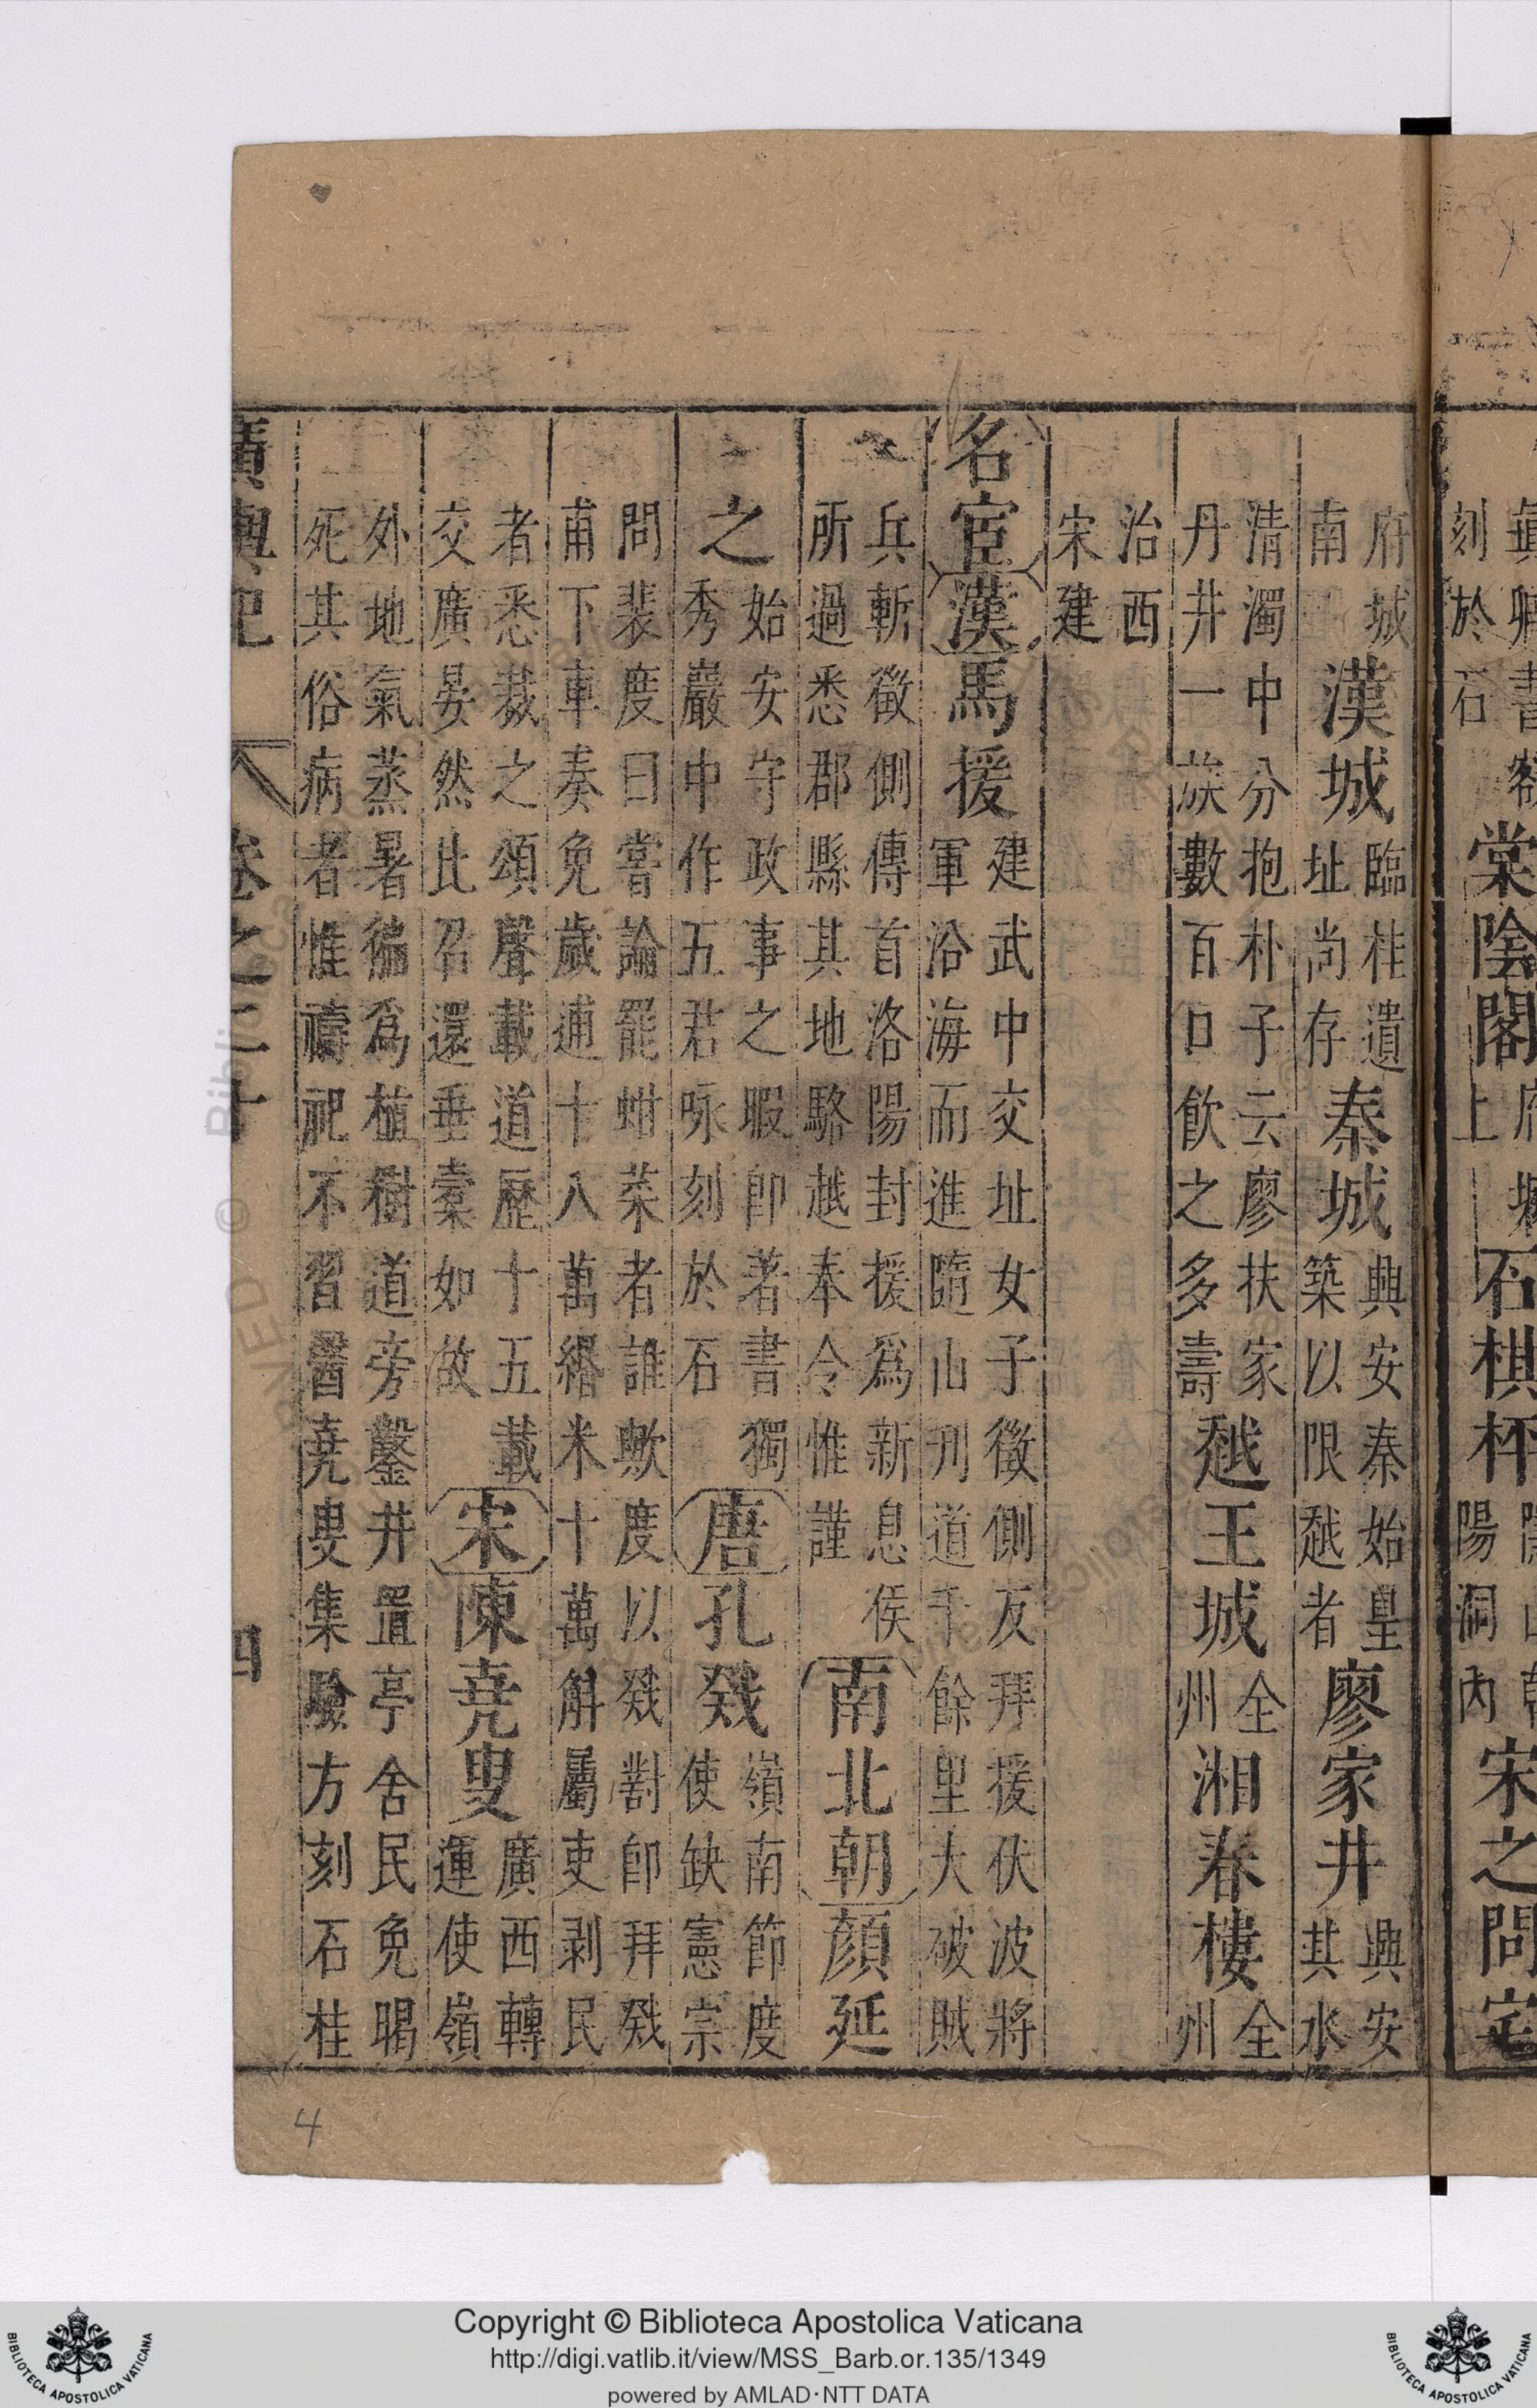 刻於石
棠陰閣
上
石棋枰
陽洞內
宋之問宅
府城
南
漢城
臨桂遺
址尚存
秦城
興安秦始皇
築以限越者
廖家井
興安
其水
清濁中分抱朴子云廖扶家
丹井一族數百口飲之多壽
越王城
全
州
湘春樓
全
州
治西
宋建
名宦
漢
馬援
建武中交址女子徵側反拜援伏波將
軍沿海而進隨山刋道千餘里大破賊
兵斬徵側傳首洛陽封援爲新息侯
所過悉郡縣其地駱越奉令惟謹
南北朝
顏延
之
始安守政事之暇卽著書獨
秀巖中作五君咏刻於石
唐
孔戣
嶺南節度
使缺憲宗
問裴度曰嘗論罷蚶菜者誰歟度以戣對卽拜戣
甫下車奏免歲逋十八萬緡米十萬斛屬吏剥民
者悉裁之頌聲載道歷十五載
交廣晏然比召還垂橐如故
宋
陳堯叟
廣西轉
運使嶺
外地氣蒸暑徧爲植樹道旁鑿井置亭舍民免暍
死其俗病者惟禱祀不習醫堯叟集驗方刻石桂
廣輿記
卷之二十
四
4
Copyright © Biblioteca Apostolica Vaticana
http://digi.vatlib.it/view/MSS_Barb.or.135/1349
powered by AMLAD·NTT DATA
BIBLIOTECA APOSTOLICA VATICANA
BIBLIOTECA APOSTOLICA VATICANA